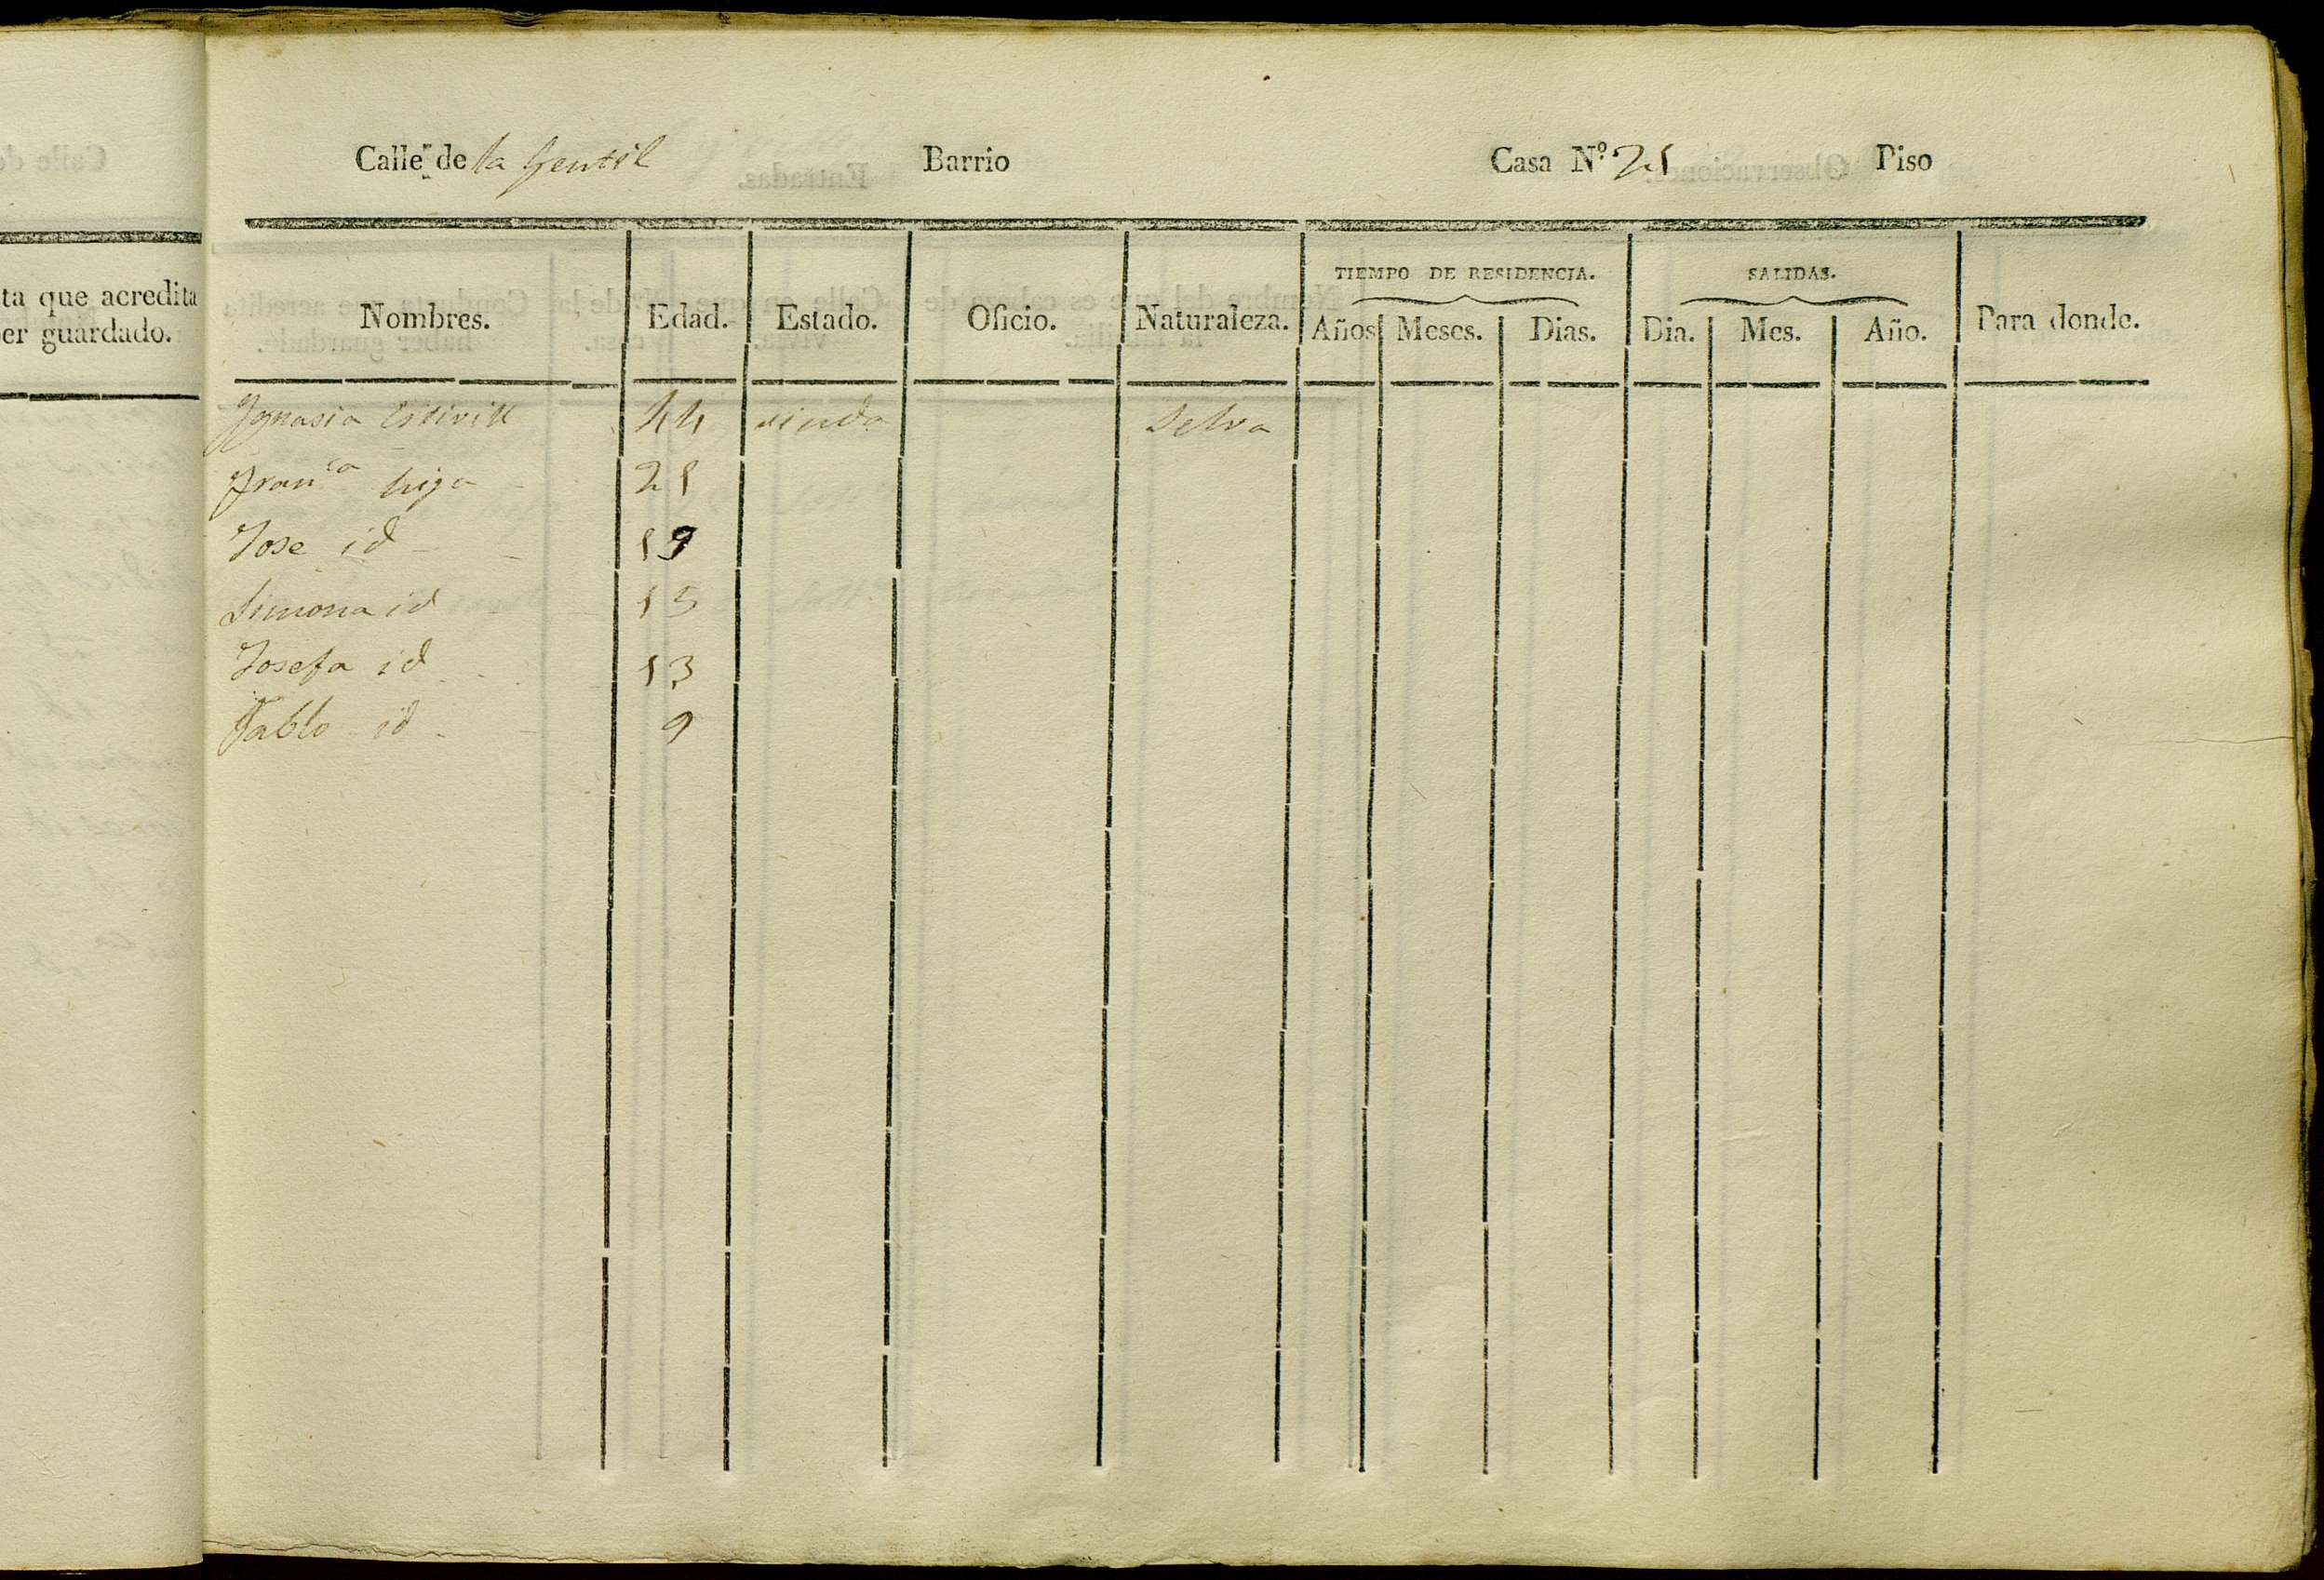 ta que acredita
er guardado.
Calle de la Gentil Barrio Casa Nº 21 Piso
TIEMPO DE RESIDENCIA. SALIDAS.
Nombres. Edad. Estado. Oficio. Naturaleza. Años Meses. Dias. Dia. Mes. Año. Para donde.
Ygnasia Estivill 44 viuda Selva
Franca hija 21
Jose id 19
Simona id 15
Josefa id 13
Pablo id 9